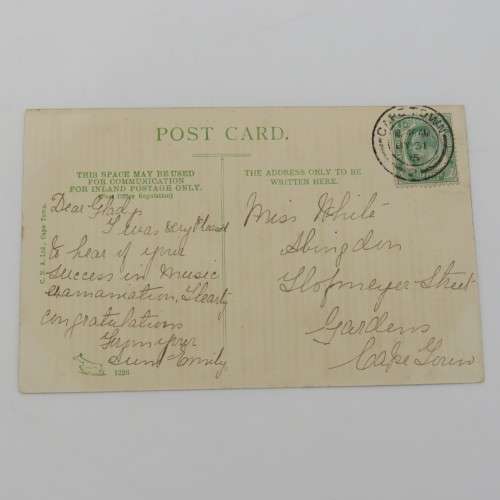 POST CARD.
THIS SPACE MAY BE USED
FOR COMMUNICATION
FOR INLAND POSTAGE ONLY.
(Post Office Regulation)
Dear Glad,
I was very pleased
to hear of your
success in music
examaniation, Hearty
congratulations
From your
Aunt Emily
1226
THE ADDRESS ONLY TO BE
WRITTEN HERE.
Miss White
Abingdon
Hofmeyer Street
Gardens
Cape Town
CAPE TOWN
31
5